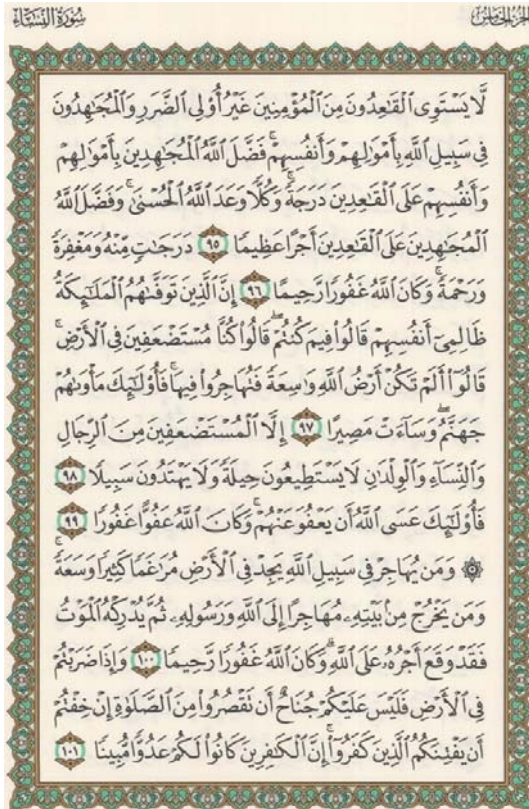 الجزء الخامس
سورة النساء
لَّا يَسْتَوِى ٱلْقَـٰعِدُونَ مِنَ ٱلْمُؤْمِنِينَ غَيْرُ أُو۟لِى ٱلضَّرَرِ وَٱلْمُجَـٰهِدُونَ
فِى سَبِيلِ ٱللَّهِ بِأَمْوَٰلِهِمْ وَأَنفُسِهِمْ ۚ فَضَّلَ ٱللَّهُ ٱلْمُجَـٰهِدِينَ بِأَمْوَٰلِهِمْ
وَأَنفُسِهِمْ عَلَى ٱلْقَـٰعِدِينَ دَرَجَةً ۚ وَكُلًّا وَعَدَ ٱللَّهُ ٱلْحُسْنَىٰ ۚ وَفَضَّلَ ٱللَّهُ
ٱلْمُجَـٰهِدِينَ عَلَى ٱلْقَـٰعِدِينَ أَجْرًا عَظِيمًا ٩٥ دَرَجَـٰتٍ مِّنْهُ وَمَغْفِرَةً
وَرَحْمَةً ۚ وَكَانَ ٱللَّهُ غَفُورًا رَّحِيمًا ٩٦ إِنَّ ٱلَّذِينَ تَوَفَّىٰهُمُ ٱلْمَلَـٰٓئِكَةُ
ظَالِمِىٓ أَنفُسِهِمْ قَالُوا۟ فِيمَ كُنتُمْ ۖ قَالُوا۟ كُنَّا مُسْتَضْعَفِينَ فِى ٱلْأَرْضِ ۚ
قَالُوٓا۟ أَلَمْ تَكُنْ أَرْضُ ٱللَّهِ وَٰسِعَةً فَتُهَاجِرُوا۟ فِيهَا ۚ فَأُو۟لَـٰٓئِكَ مَأْوَىٰهُمْ
جَهَنَّمُ ۖ وَسَآءَتْ مَصِيرًا ٩٧ إِلَّا ٱلْمُسْتَضْعَفِينَ مِنَ ٱلرِّجَالِ
وَٱلنِّسَآءِ وَٱلْوِلْدَٰنِ لَا يَسْتَطِيعُونَ حِيلَةً وَلَا يَهْتَدُونَ سَبِيلًا ٩٨
فَأُو۟لَـٰٓئِكَ عَسَى ٱللَّهُ أَن يَعْفُوَ عَنْهُمْ ۚ وَكَانَ ٱللَّهُ عَفُوًّا غَفُورًا ٩٩
۞ وَمَن يُهَاجِرْ فِى سَبِيلِ ٱللَّهِ يَجِدْ فِى ٱلْأَرْضِ مُرَٰغَمًا كَثِيرًا وَسَعَةً ۚ
وَمَن يَخْرُجْ مِنۢ بَيْتِهِۦ مُهَاجِرًا إِلَى ٱللَّهِ وَرَسُولِهِۦ ثُمَّ يُدْرِكْهُ ٱلْمَوْتُ
فَقَدْ وَقَعَ أَجْرُهُۥ عَلَى ٱللَّهِ ۗ وَكَانَ ٱللَّهُ غَفُورًا رَّحِيمًا ١٠٠ وَإِذَا ضَرَبْتُمْ
فِى ٱلْأَرْضِ فَلَيْسَ عَلَيْكُمْ جُنَاحٌ أَن تَقْصُرُوا۟ مِنَ ٱلصَّلَوٰةِ إِنْ خِفْتُمْ
أَن يَفْتِنَكُمُ ٱلَّذِينَ كَفَرُوٓا۟ ۚ إِنَّ ٱلْكَـٰفِرِينَ كَانُوا۟ لَكُمْ عَدُوًّا مُّبِينًا ١٠١